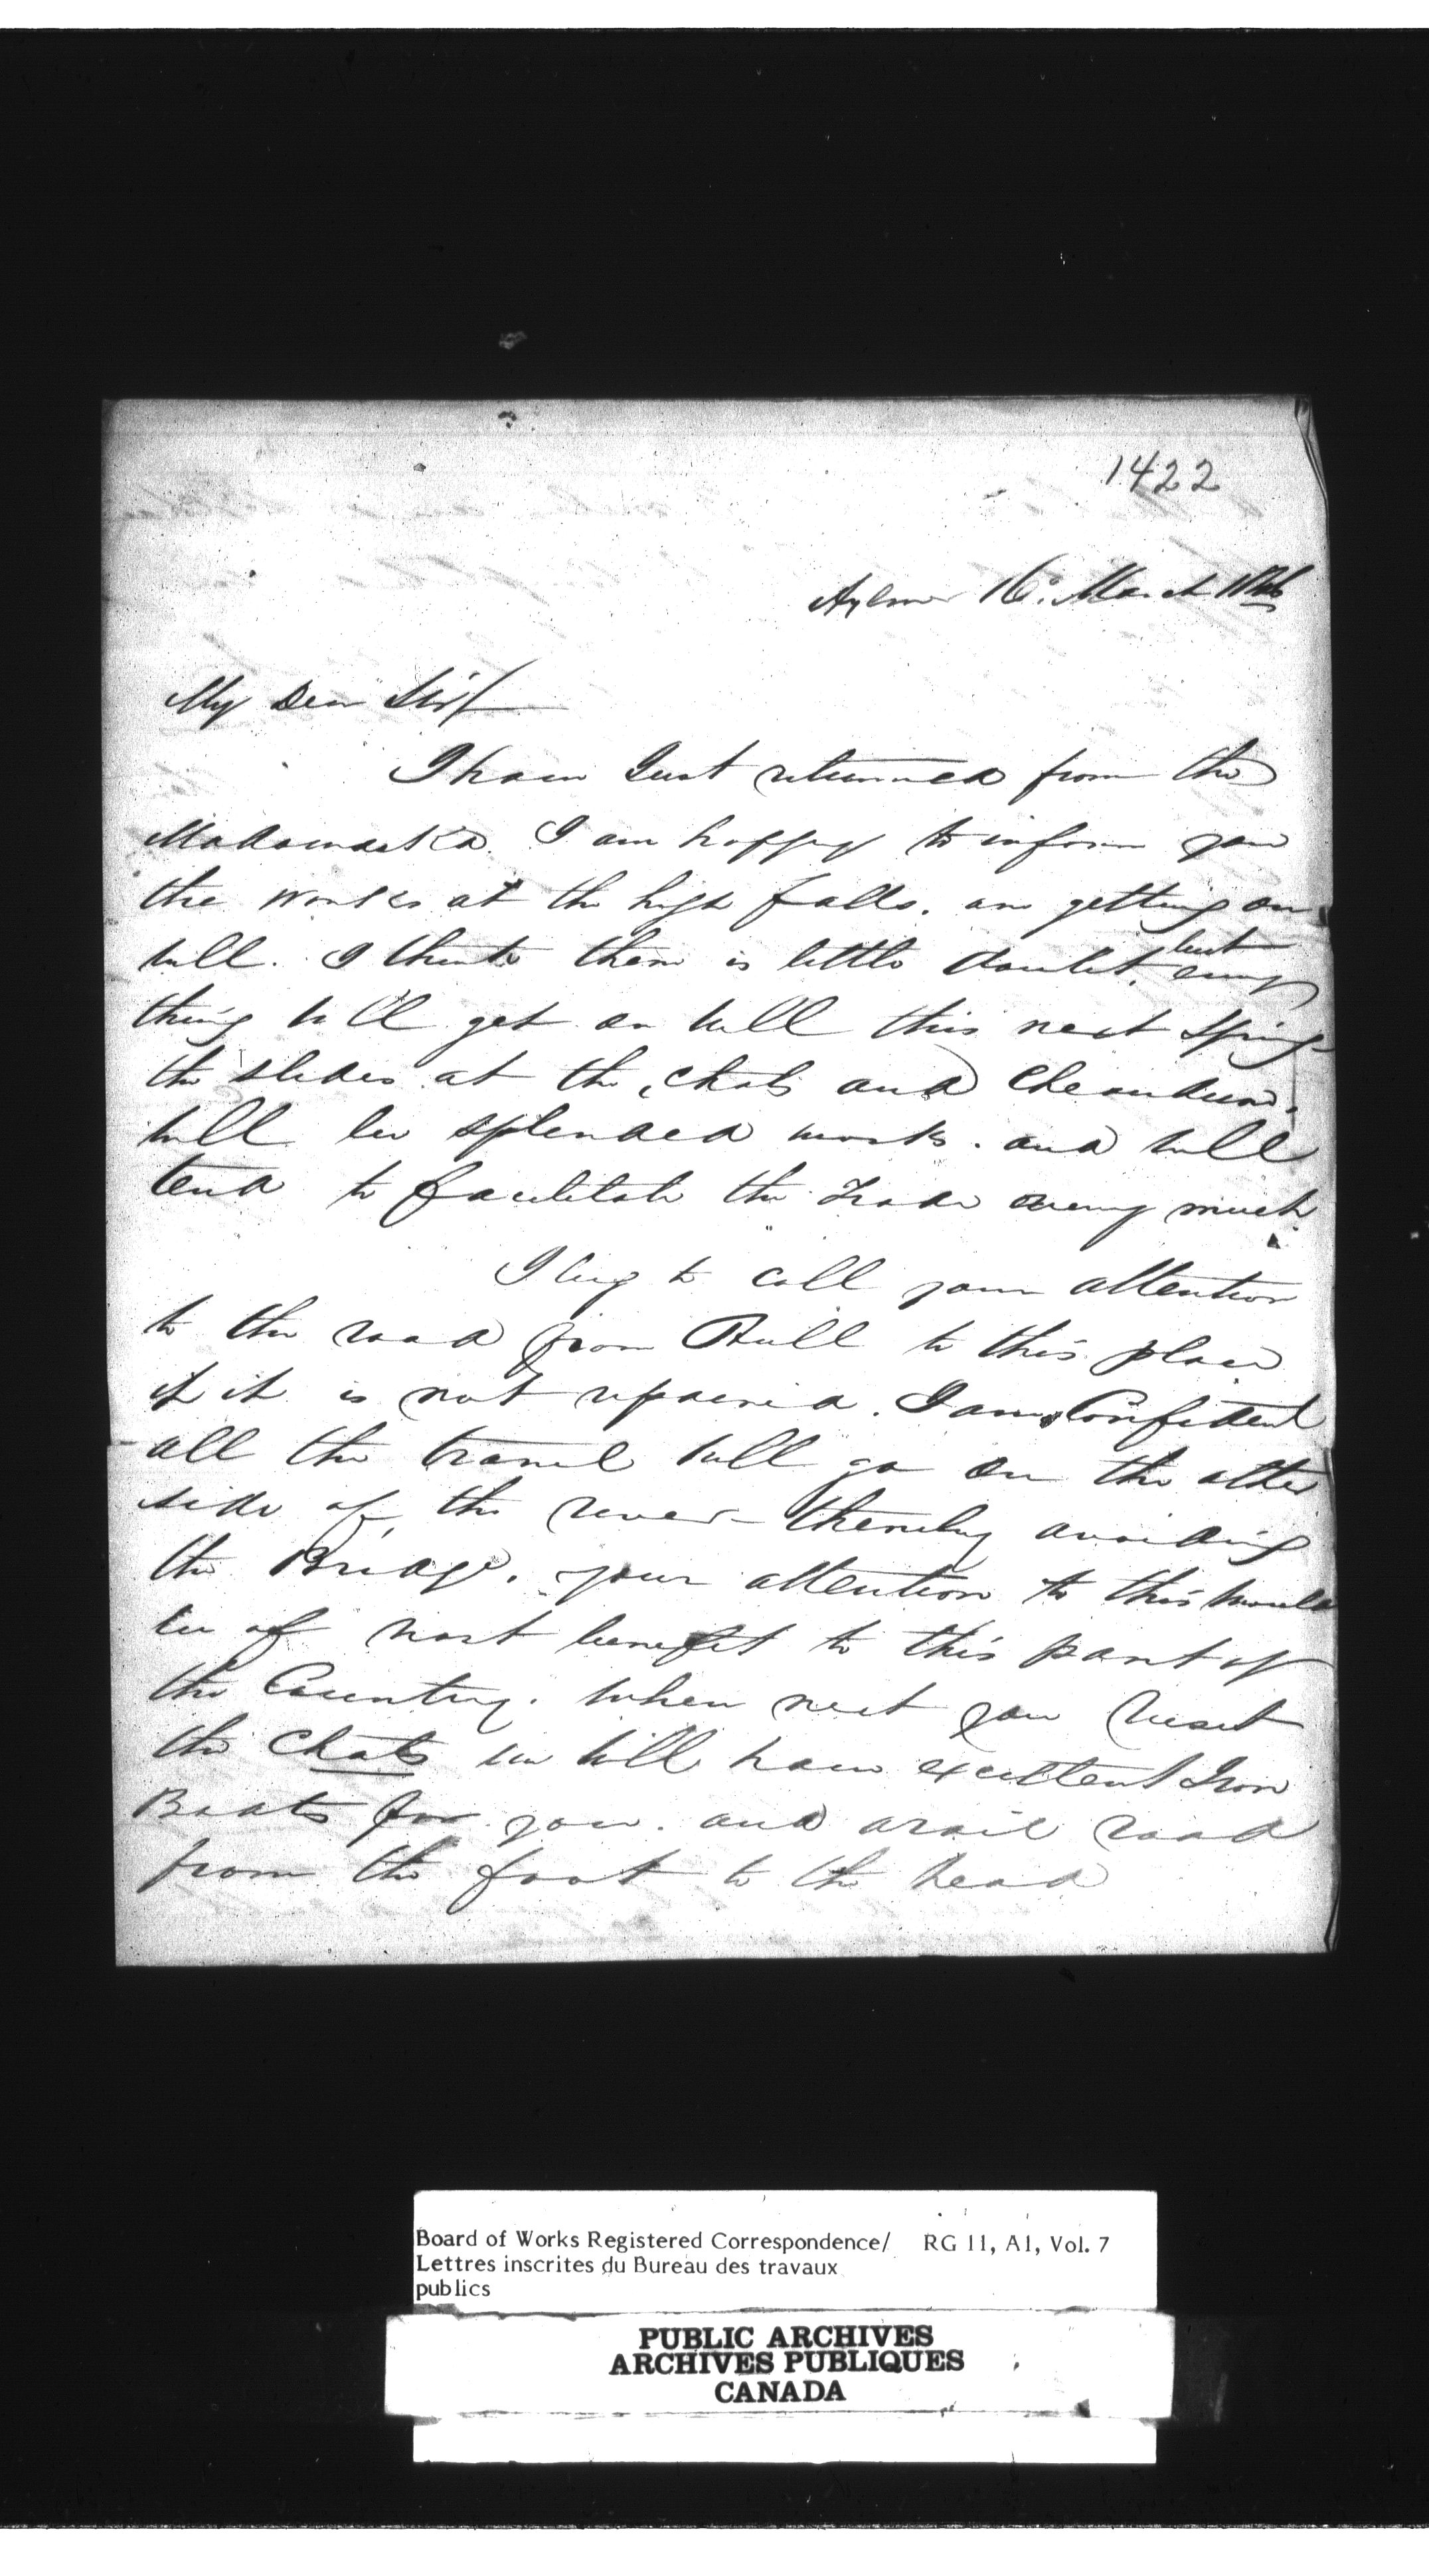 1422
Aylmer 16. March 1846
My Dear Sir/
I have Just returned from the
Madawaska. I am happy to inform you
the works at the high falls. are getting on
well. I think there is little doubt. but every
thing will get on well this next Spring
the slides at the Chats and Cheaudere.
will be splended works. and will
tend to faciletate the Trade very much
I beg to call your attention
to the road from Hull to this place
if it is not repaired. I am Confident
all the travel will go on the other
side of the river thereby avoiding
the Bridge. your attention to this would
be of most benefit to this part of
the Country. when next you visit
the Chats we will have excellent Iron
Boats for you. and a rail road
from the foot to the head
Board of Works Registered Correspondence/ RG 11, A1, Vol. 7
Lettres inscrites du Bureau des travaux
publics
PUBLIC ARCHIVES
ARCHIVES PUBLIQUES
CANADA